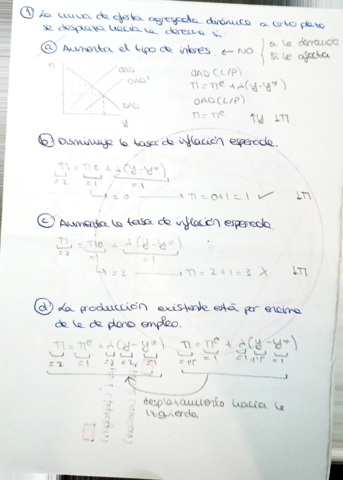 ① La curva de oferta agregada dinámica a corto plazo
se desplaza hacia la derecha si:
ⓐ Aumenta el tipo de interés ← NO
a la derecha
si le afecta
π
OAD
OAD'
DAD
y
OAD (L/P)
π = πe + λ(y-y*)
OAD (L/P)
π = πe ↑y ↓π
ⓑ Disminuye la tasa de inflación esperada.
π = πe + λ(y-y*)
=2 =1 =1
↳ = 0 → π = 0+1 = 1 ✓ ↓π
ⓒ Aumenta la tasa de inflación esperada.
π = πe + λ(y-y*)
=2 =1 =1
↳ = 2 → π = 2+1 = 3 x ↓π
ⓓ La producción existente está por encima
de la de pleno empleo.
π = πe + λ(y-y*) π = πe + λ(y-y*)
=2 =1 =1
desplazamiento hacia la
izquierda